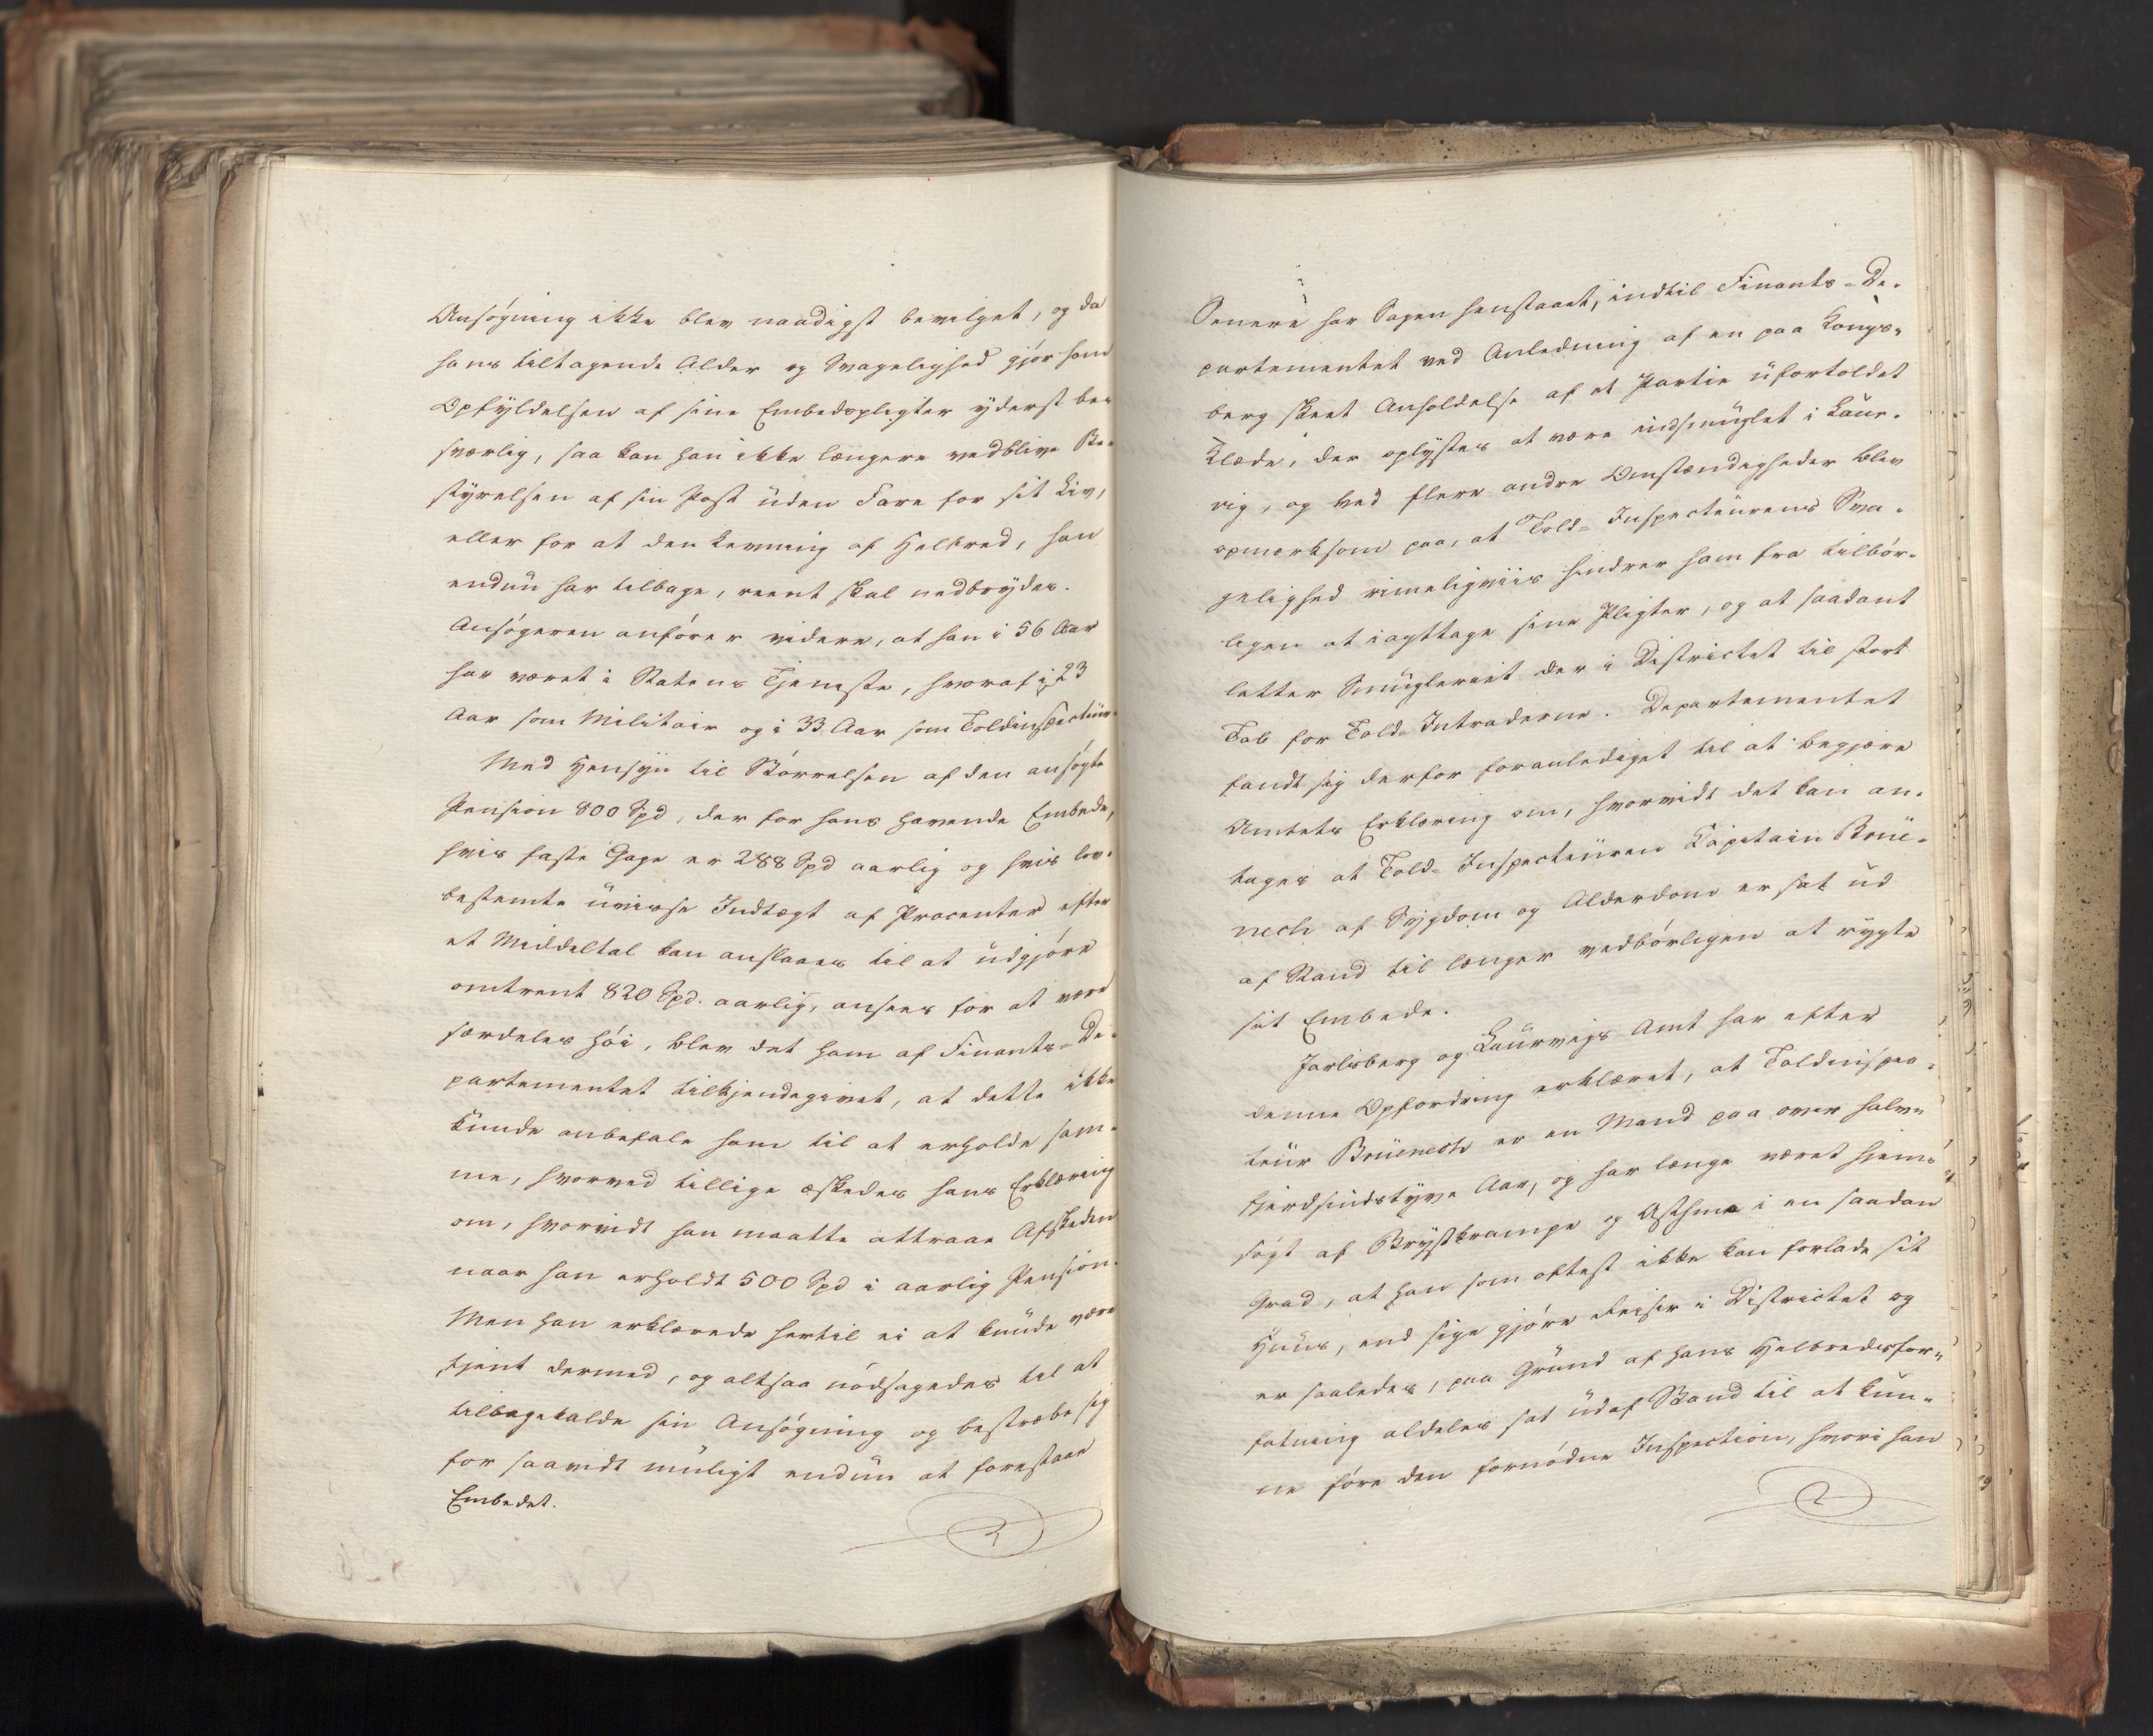 Ansøgning ikke blev naadigst bevilget, og da
hans tiltagende Alder og Svagelighed gjør ham
Opfyldelsen af sine Embedspligter yderst be-
sværlig, saa kan han ikke længere vedblive Be-
styrelsen af sin Post uden Fare for sit Liv,
eller for at den Levning af Helbred, han
endnu har tilbage, reent skal nedbrydes.
Ansøgeren anfører videre, at han i 56 Aar
har været i Statens Tjeneste, hvoraf i 23
Aar som Militair og i 33 Aar som Toldinspecteur.
Med Hensyn til Størrelsen af den ansøgte
Pension 800 Spd, der for hans havende Embede,
hvis faste Gage er 288 Spd aarlig og hvis lov-
bestemte uvisse Indtægt af Procenter efter
et Middeltal kan anslaaes til at udgjøre
omtrent 820 Spd. aarlig, ansees for at være
særdeles høi, blev det ham af Finants-De-
partementet tilkjendegivet, at dette ikke
kunde anbefale ham til at erholde sam-
me, hvorved tillige æskedes hans Erklæring
om, hvorvidt han maatte attraae Afskeden
naar han erholdt 500 Spd i aarlig Pension.
Men han erklærede hertil ei at kunde være
tjent dermed, og altsaa nødsagedes til at
tilbagekalde sin Ansøgning og bestræbe sig
for saavidt muligt endnu at forestaae
Embedet.
Senere har Sagen henstaaet, indtil Finants-De-
partementet ved Anledning af en paa Kongs-
berg skeet Anholdelse af et Partie ufortoldet
Klæde, der oplystes at være indsmuglet i Laur-
vig, og ved flere andre Omstændigheder blev
opmærksom paa, at Told-Inspecteurens Sva-
gelighed rimeligviis hindrer ham fra tilbør-
ligen at iagttage sine Pligter, og at saadant
letter Smugleriet der i Districtet til stort
Tab for Told-Intraderne. Departementet
fandt sig derfor foranlediget til at begjære
Amtets Erklæring om, hvorvidt det kan an-
tages at Told-Inspecteuren Capitain Brue-
nech af Sygdom og Alderdom er sat ud
af Stand til længer vedbørligen at rygte
sit Embede.
Jarlsberg og Laurvigs Amt har efter
denne Opfordring erklæret, at Toldinspec-
teur Bruenech er en Mand paa over halv-
fjerdsindstyve Aar, og har længe været hjem-
søgt af Brystkrampe og Asthma i en saadan
Grad, at han som oftest ikke kan forlade sit
Huus, end sige gjøre Reiser i Districtet og
er saaledes, paa Grund af hans Helbredsfor-
fatning aldeles sat ud af Stand til at kun-
ne føre den fornødne Inspection, hvori han